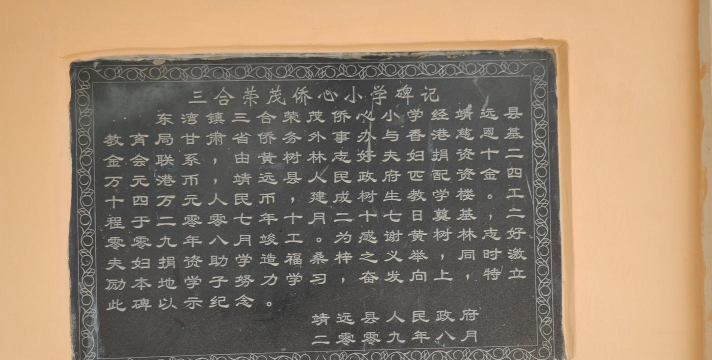 三合荣茂侨心小学碑记
东湾镇三合荣茂侨心小学经靖远县
教育局甘肃省侨务外事办与香港慈恩基
金会联系，由黄树林志好夫妇捐资十二
万元港币，靖远县人民政府匹配资金四
十四万元人民币，建成树生教学楼。工
程于二零零七年十月二十七日奠基，二
零零九年八月竣工。为感谢黄树林志好
夫妇捐资助学造福桑梓之义举，同时激
励本地学子努力学习，奋发向上，特立
此碑以示纪念。
靖远县人民政府
二零零九年八月